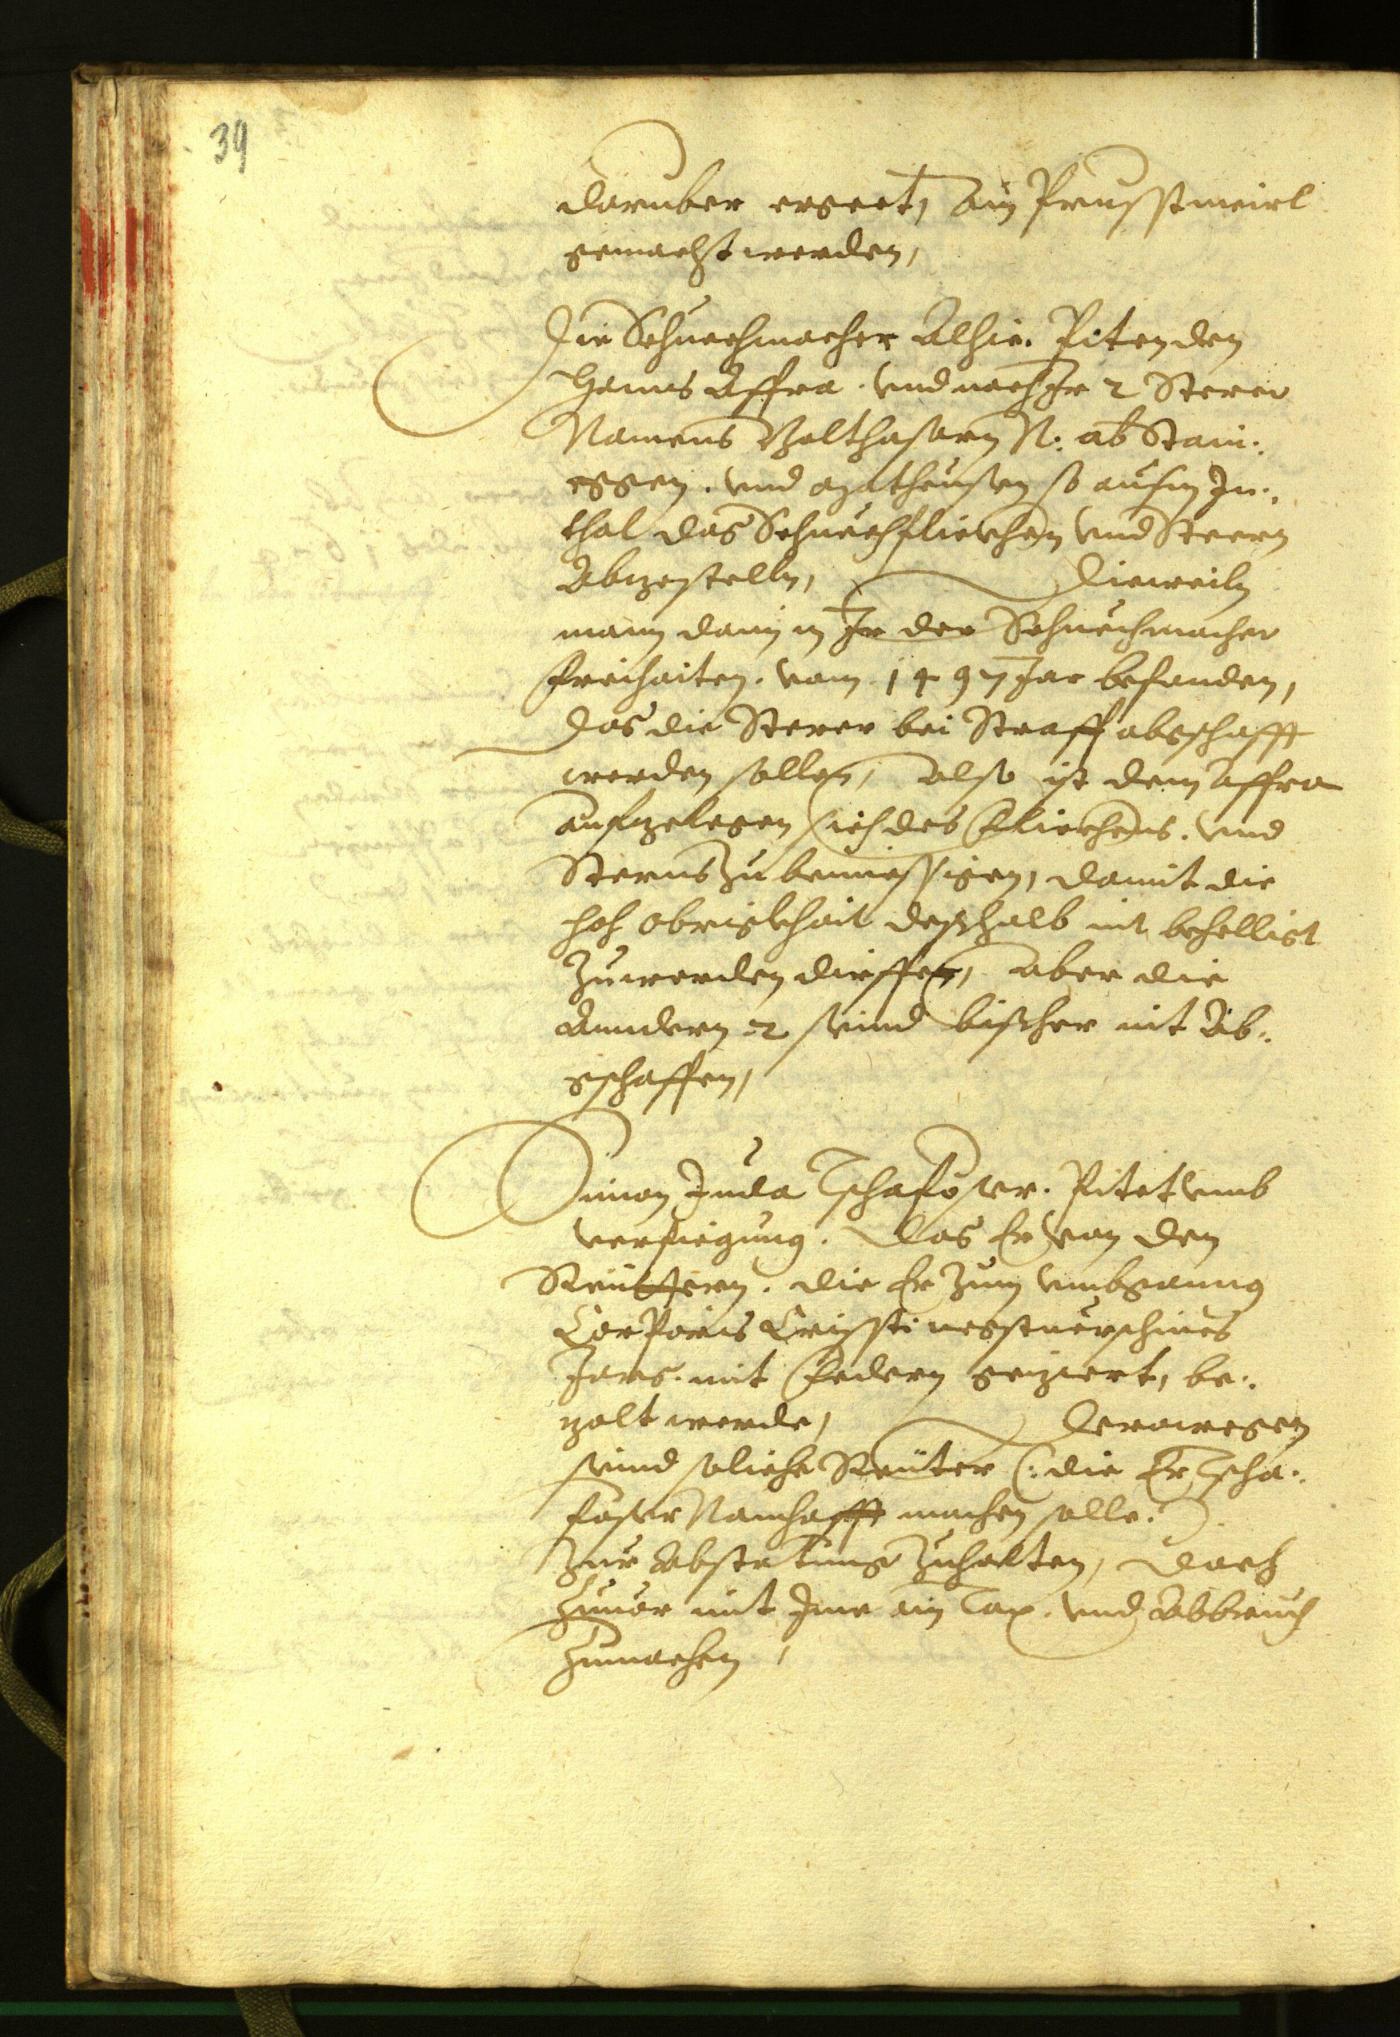 39
daruber ergeet, ain Prusstmeirl
gemacht werden,
Die Schuechmacher Alhie. Piten den
Hanns Affra. vnd noch Ir 2 Sterer
Namens Walthasarn N: ab Stain:
eggen. vnd so aufm In:
thal das Schuechflickhen vnd Steern
Abzestelln, Dieweiln
mann dann in Ir der Schuechmacher
Freihaiten. vom 1497 Jar befanden,
das die Sterer bei Straff abgschafft
werden sollen, also ist dem Affra
aufzelegen sich des Flickhens. vnd
Sterns zu bemiessigen, damit die
hoh obrigkhait deshalb nit behelligt
zuwerden dirffen, aber die
Anndern 2 seind bisher nit Ab:
gschaffen,
Simon Juda Tschafoser. Pitet vmb
verfiegung. das Er von den
Reuttern. die Er zum vmbganng
Corporis Cristi negstuerschines
Jars. mit Federn geziert, be:
zalt werde, Derowegen
seind soliche Reutter (: die Er Tscha:
foser Namhafft machen solle:)
zur Abstatung zuhalten, doch
zuuor mit Ime ain Tax. vnd Abbruch
zumachen,